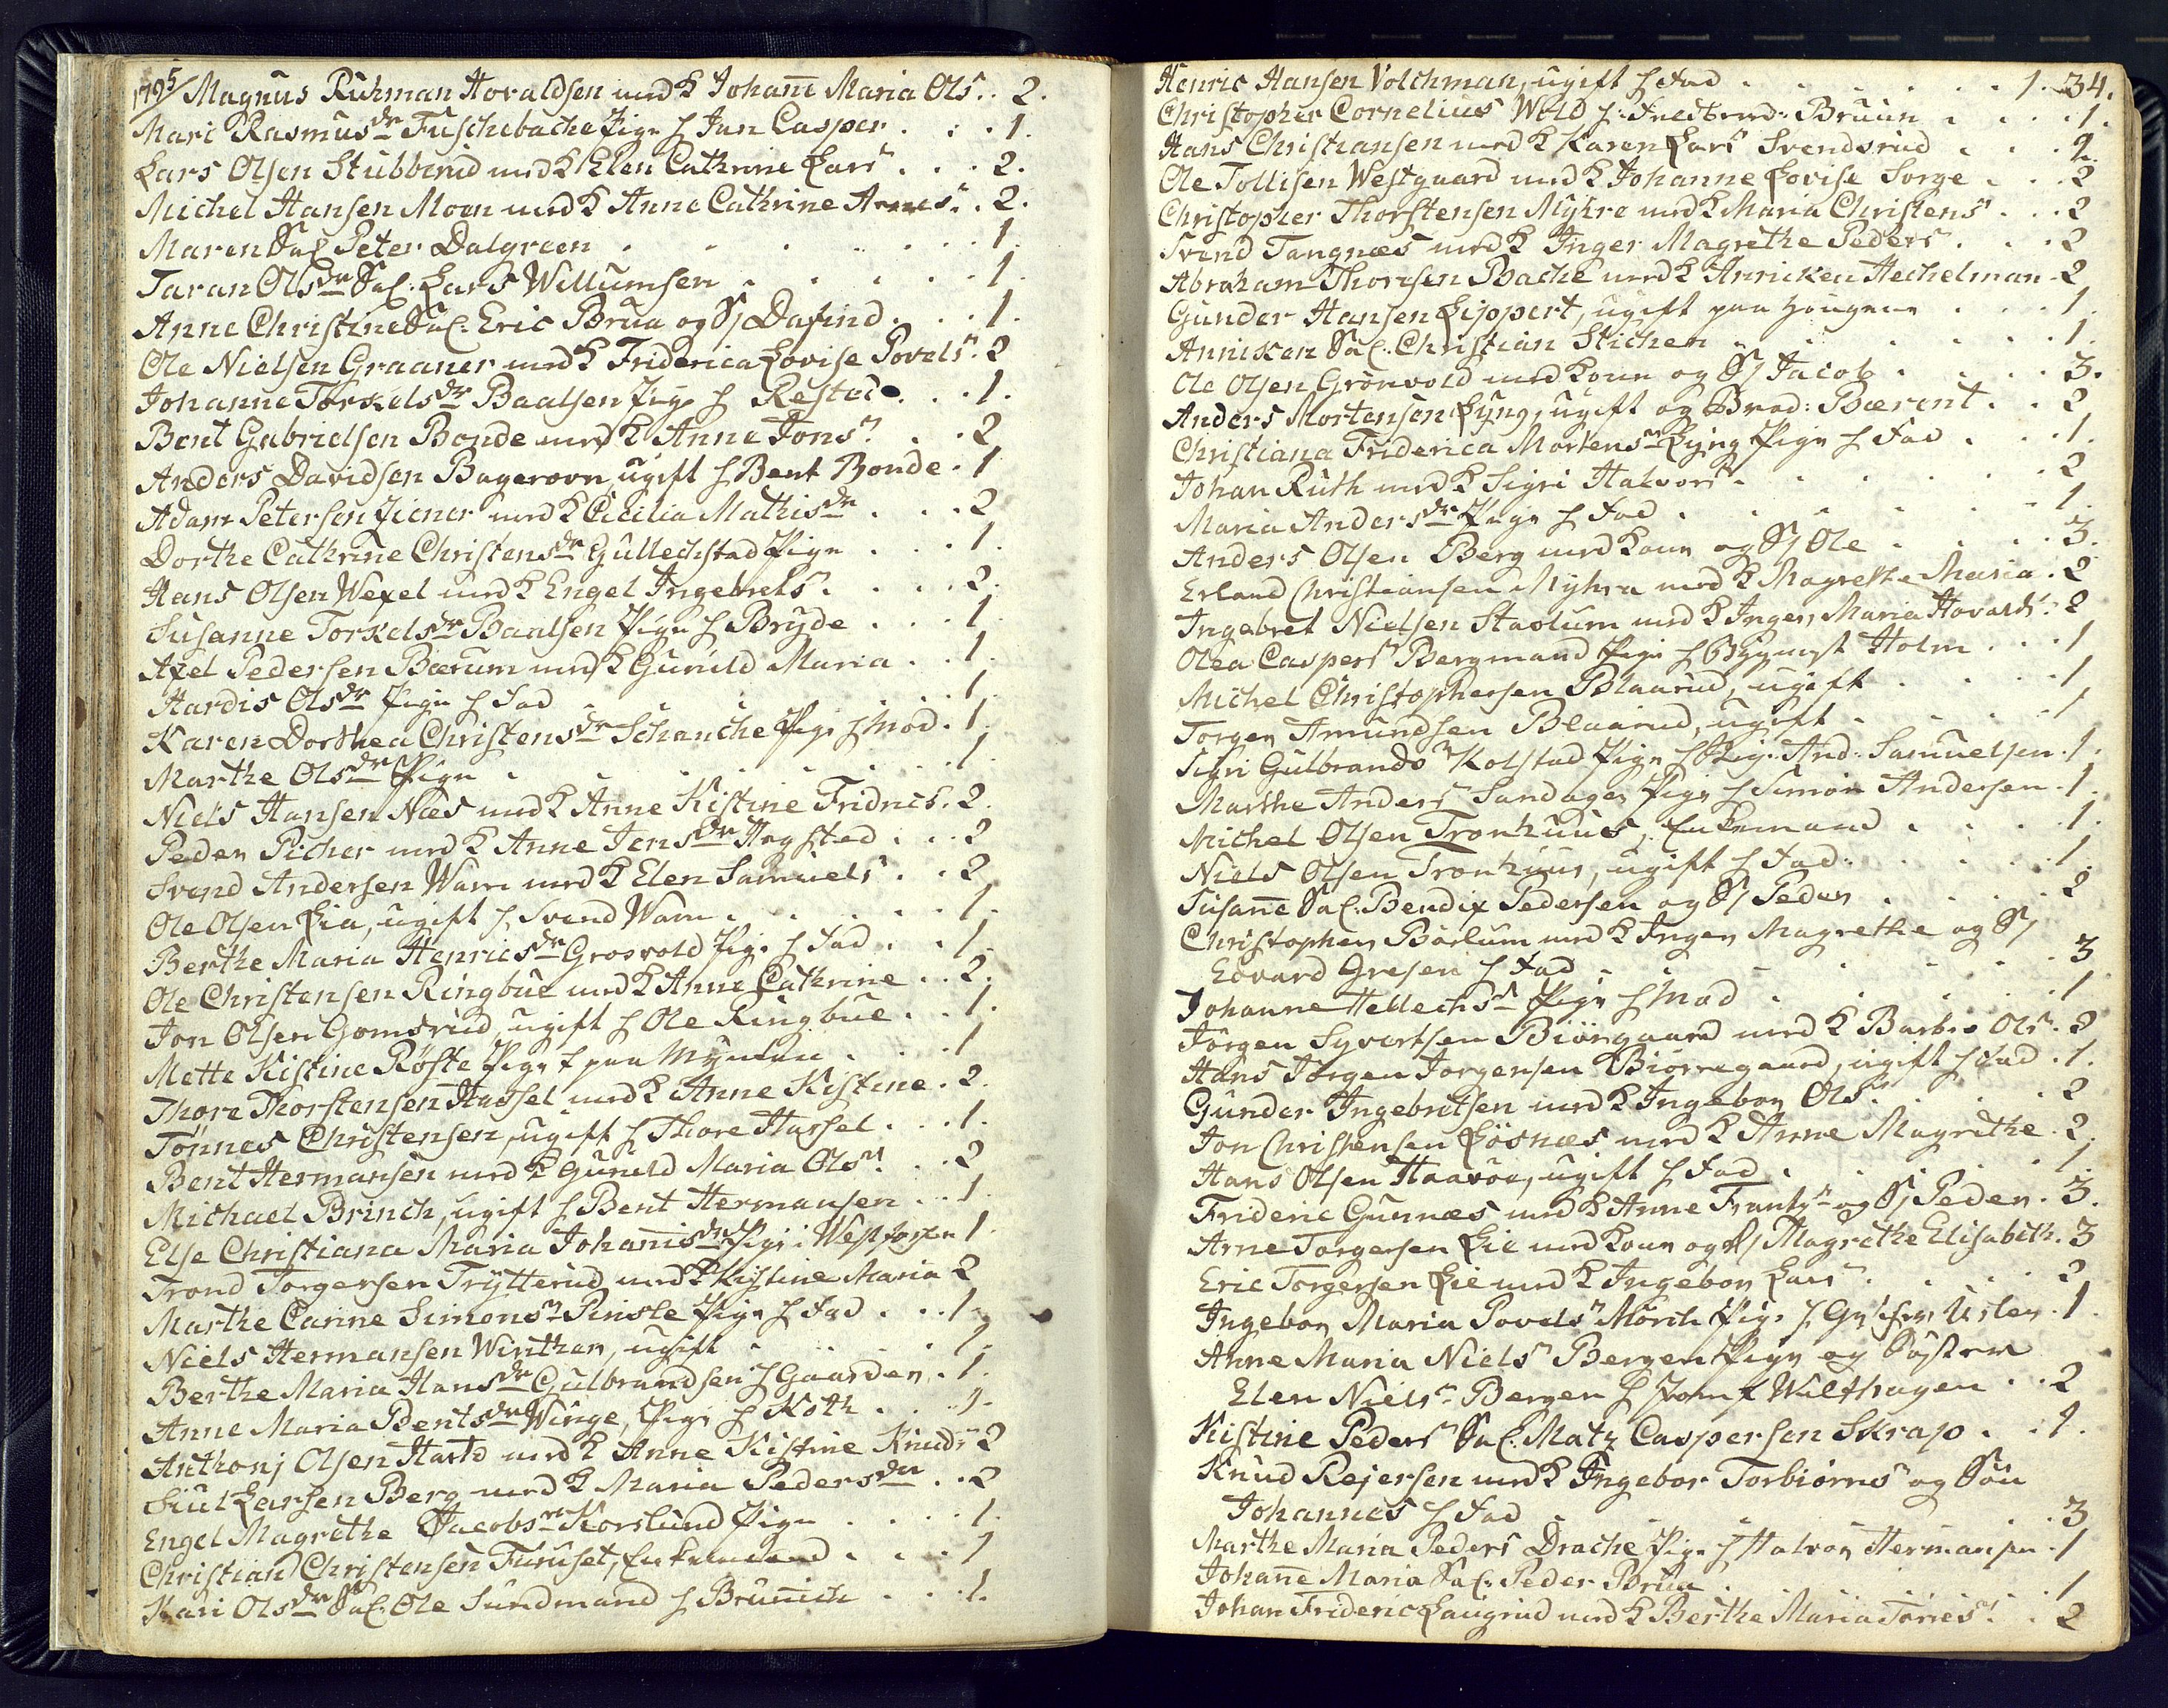 1795/ Magnus Ruhman Hovaldsen med K Johañe Maria Ols. . 2.
Mari Rasmusdr Fuschebache Pige h Jan Casper . . . 1.
Lars Olsen Stubberud med K Elen Cathrine Lars . . . 2.
Michel Hansen Moen med K Anne Cathrine Arnes . . 2.
Maren Sal Peter Dalgreen . . . 1.
Taran Olsdr Sal. Lars Willumsen . . . 1.
Anne Christine Sal. Eric Brua og S/ Dafind . . . 1.
Ole Nielsen Graaner med K Friderica Lovise Povels . 2
Johanne Torkelsdr Baalsen Pige h Rested . . . 1.
Bent Gabrielsen Bonde med K Anne Jons . . . 2
Anders Davidsen Bagerovn, ugift h Bent Bonde . 1
Adam Petersen Ziener med K Cicilia Mathisdr . . . 2
Dorthe Cathrine Christensdr Gullechstad Pige . . . 1.
Hans Olsen Wexel med K Engel Ingebrets . . . 2.
Susanne Torkelsdr Baalsen Pige h Bryde . . . 1
Axel Pedersen Bærum med K Gunild Maria . . 1.
Hardis Olsdr Pige h Fad . . . 1.
Karen Dorthea Christensdr Schanche Pige h Mod . 1.
Marthe Olsdr Pige . . . 1
Niels Hansen Næs med K Anne Kistine Fridrics . 2.
Peder Picher med K Anne Jensdr Hegsted . . . 2
Svend Andersen Warn med K Elen Samuels . . 2
Ole Olsen Lia, ugift h. Svend Warn . . . 1.
Berthe Maria Henricsdr Grosvold Pige h Fad . . 1.
Ole Christensen Ringbue med K Anne Cathrine . . 2.
Jon Olsen Gomsrud, ugift h Ole Ringbue . . 1.
Mette Kistine Røste Pige h paa Mynten . . . 1
Thore Thorstensen Hassel med K Anne Kistine . 2.
Tønnes Christensen, ugift h Thore Hassel . . . 1.
Bent Hermansen med K Gunild Maria Ols . . . 2
Michael Brinch, ugift h Bent Hermansen . . . 1.
Else Christiana Maria Johañisdr Pige i Westfossen 1.
Trond Torgersen Trytterud med K Kistine Maria 2
Marthe Carine Simons Pinsle Pige h Fad . . . 1.
Niels Hermansen Winther, ugift . . . 1.
Berthe Maria Hansdr Gulbrandsen h Gaarder . 1.
Anne Maria Bentsdr Winge, Pige h Koth . . . 1.
Anthonj Olsen Hartz med K Anne Kistine Knuds 2
Siul Larsen Berg med K Maria Pedersdr . . 2
Engel Magrethe Jacobs Korslund Pige . . . 1.
Christian Christensen Furuset, Enkemand . . . 1
Kari Olsdr Sal. Ole Sundmand h Brunich . . . 1.
Henric Hansen Volchman, ugift h Fad . . . 1. 34.
Christopher Cornelius Wold h. Bruun . . . 1.
Hans Christiansen med K Karen Lars Svendsrud . . . 2.
Ole Tollisen Westgaard med K Johanne Lovise Sorge . . . 2
Christopher Thorstensen Myhre med K Maria Christens . . . 2
Svend Tangnæs med K Inger Magrethe Peders . . . 2
Abraham Thoresen Bache med K Anricken Hechelman . 2
Gunder Hansen Lippert, ugift paa Hougene . . . 1.
Anniken Sal. Christian Stichen . . . 1.
Ole Olsen Grønvold med Kone og S/ Jacob . . . 3.
Anders Mortensen Lyng, ugift og Brod: Bærent . . 2
Christiana Friderica Mortens Lyng Pige h Fad . . . 1.
Johan Ruth med K Sigri Halvors . . . 2
Maria Andersdr Pige h Fad . . . 1.
Anders Olsen Berg med Kone og S/ Ole . . . 3.
Erland Christiansen Myhra med K Magrethe Maria . 2
Ingebret Nielsen Stavlum med K Inger Maria Hovalds . 2
Olea Caspers Bergmand Pige h Holm . . . 1
Michel Christophersen Blaarud, ugift . . . 1
Torger Amundsen Blaarud, ugift . . . 1
Sigri Gulbrands Kolstad Pige h And: Samuelsen . 1.
Marthe Anders Sandager Pige h Simon Andersen . 1.
Michel Olsen Tronhuus, Enkemand . . . 1.
Niels Olsen Tronhuus, ugift h Fad . . . 1.
Susañe Sal. Bendix Pedersen og S/ Peder . . . 2
Christopher Børlum med K Inger Magrethe og S/
Edvard Gresen h Fad . . . 3
Johanne Hellechs Pige h Mod . . . 1
Jørgen Syvertsen Biørgaard med K Barbro Ols . 2
Hans Jørgen Jorgensen Biørregaard, ugift h Fad . 1.
Gunder Ingebretsen med K Ingebor Ols . . . 2
Jon Christensen Løsnæs med K Anne Magrethe . 2.
Hans Olsen Haavoe, ugift h Fad . . . 1.
Frideric Gunnæs med K Anne Frantz og S/ Peder . 3.
Arne Torgersen Lie med Kone og D/ Magrethe Elisabeth . 3
Eric Torgersen Lie med K Ingebor Lars . . . 2
Ingebor Maria Povels Mörch Pige h Usler . 1.
Anne Maria Niels Bergen Pige og Søster
Elen Niels Bergen h Wulthagen . . 2
Kistine Peders Sal. Matz Caspersen Skrap . . 1.
Knud Rejersen med K Ingebor Torbiørns og Søn
Johannes h Fad . . . 3
Marthe Maria Peders Drache Pige h Halvor Hermansen . 1
Johañe Maria Sal. Peder Brua . . . 1
Johan Frideric Laugrud med K Berthe Maria Tøries . . 2